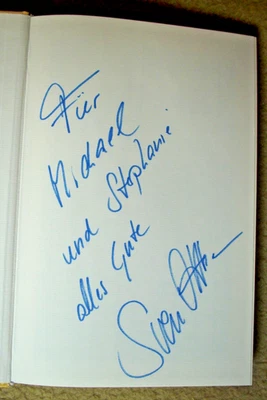 Für
Michael
und Stephanie
alles Gute
Sven